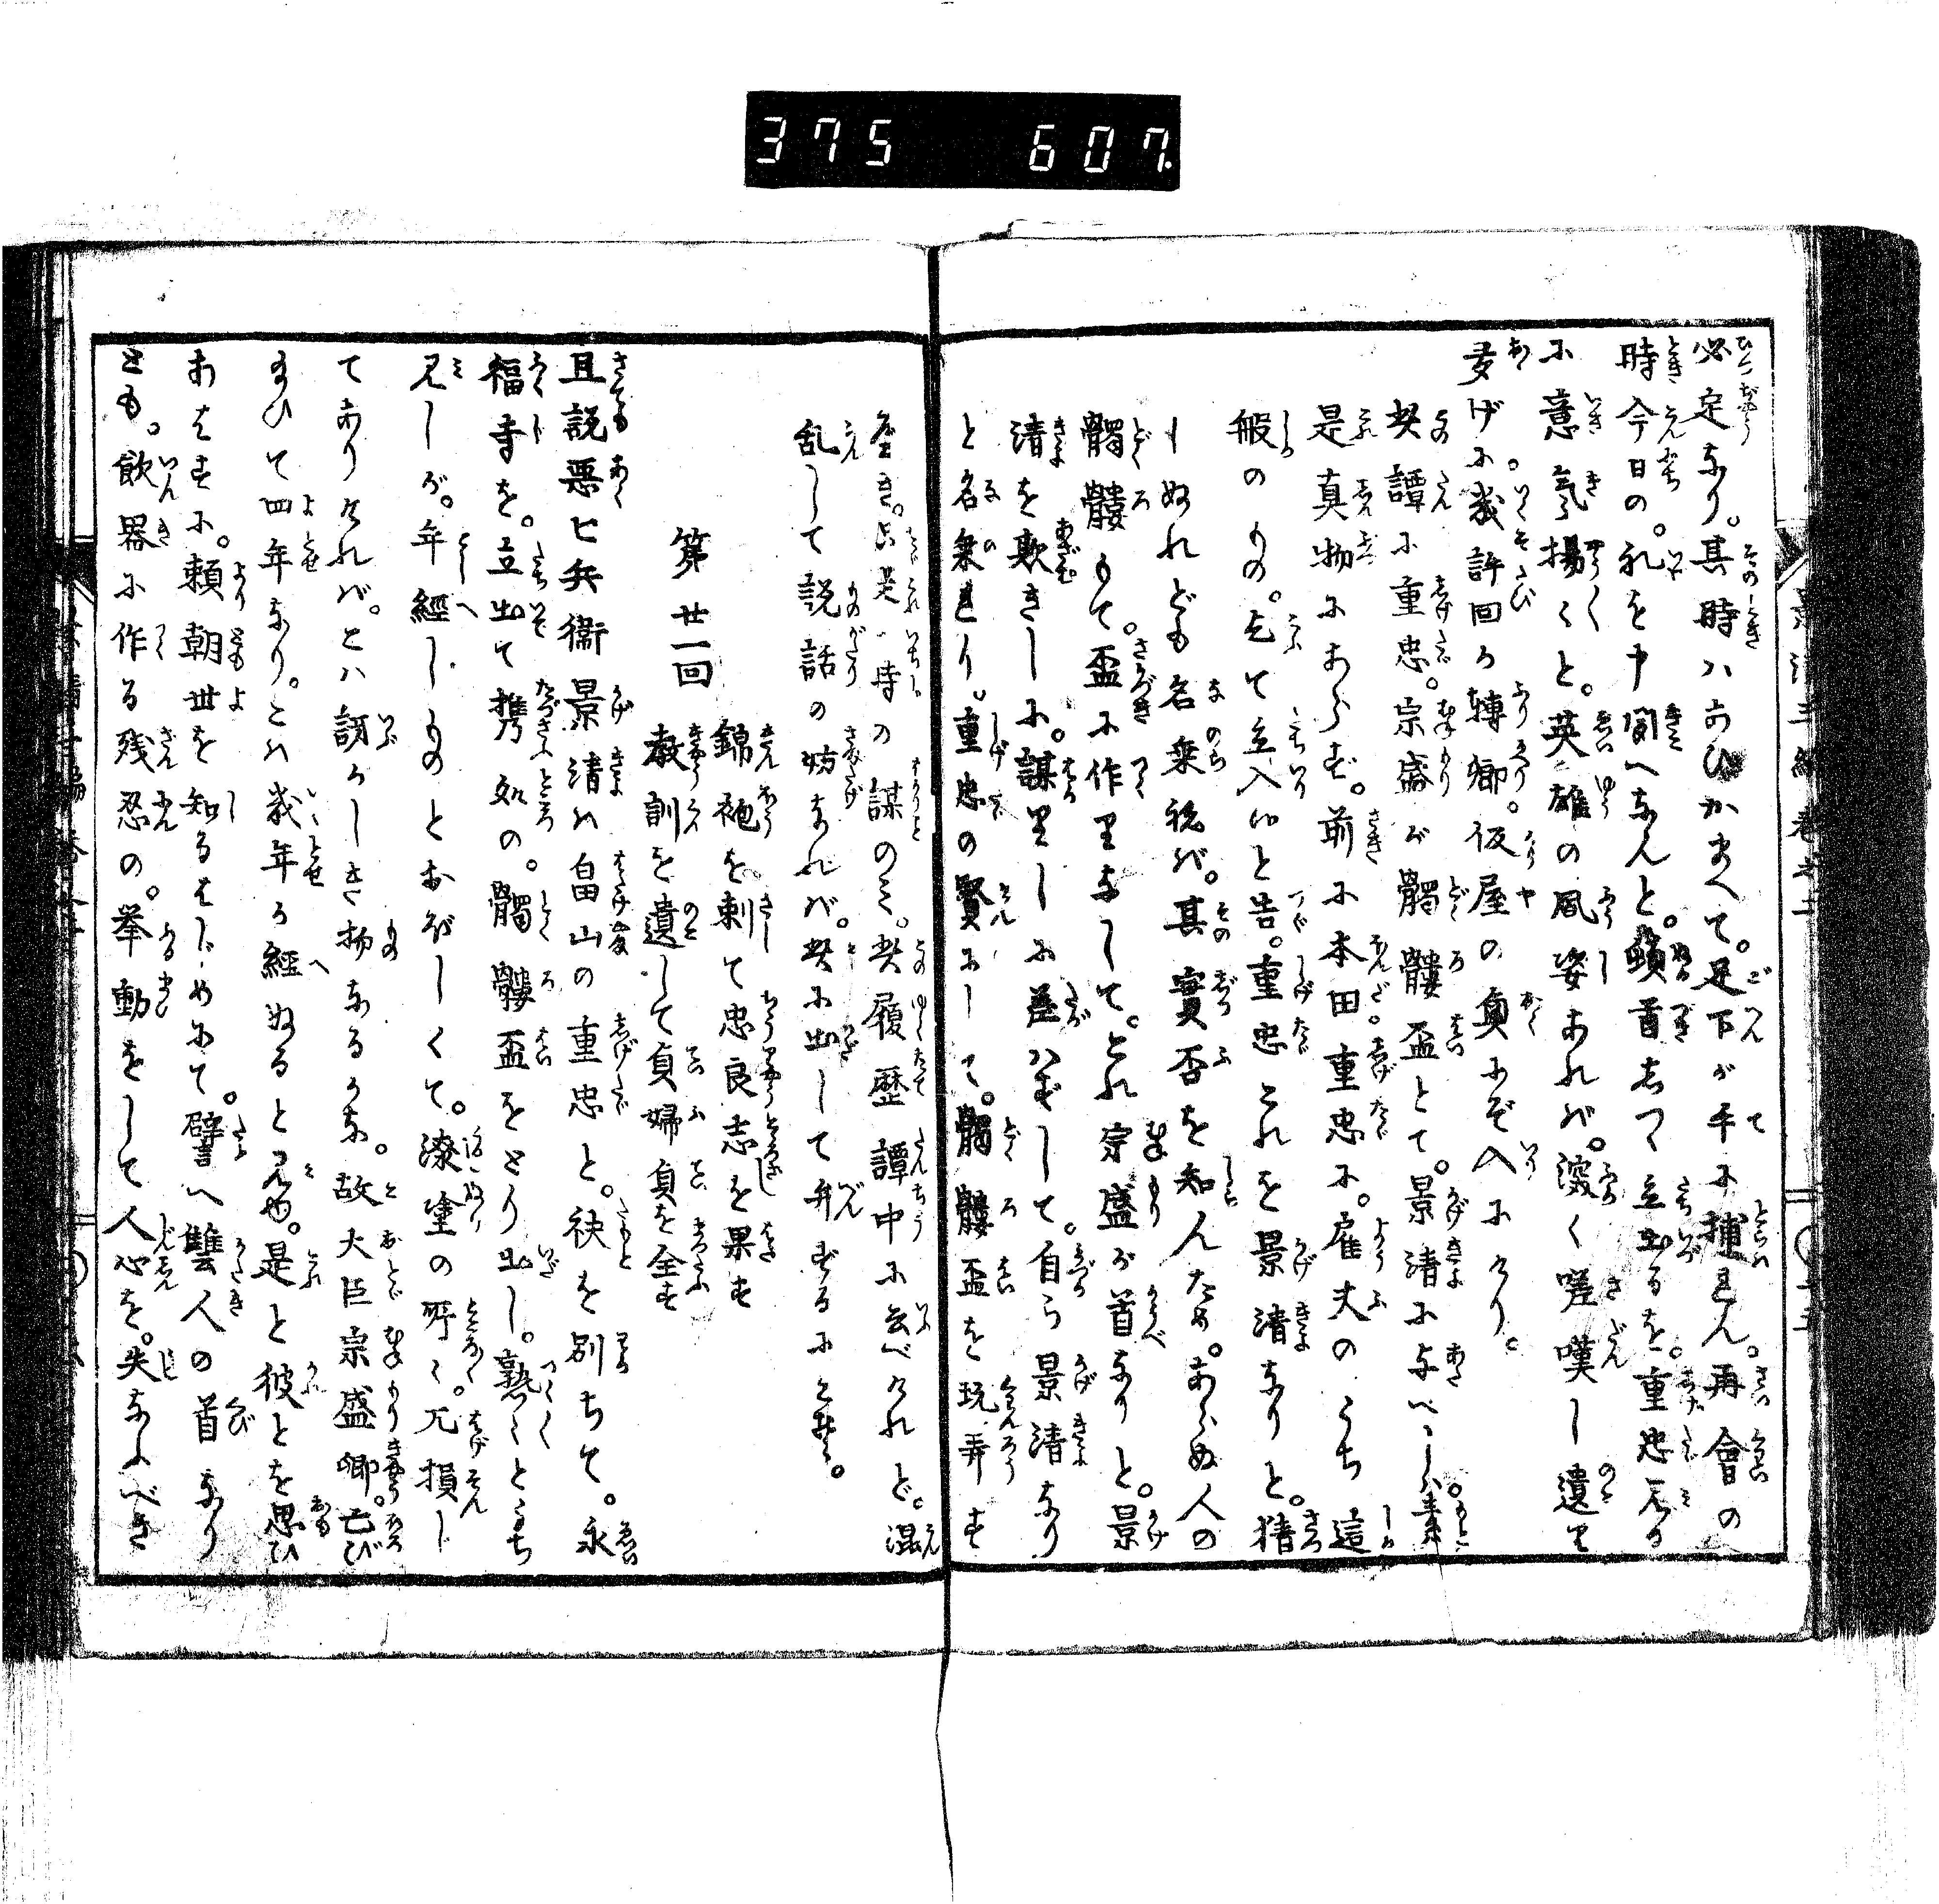 375 607.
必定なり。其時ハあひかまへて。足下が手に捕はれん。再會の
時今日の。礼を申聞へなんと。頓首なして立出るを。重忠見る
に意氣揚々と。英雄の風姿あれば。深く嗟嘆し遺は
しげに幾許回か轉郷。仮屋の奥にぞ入にけり。
契譚に重忠。宗盛が髑髏盃とて。景清に与へしハ。素
是真物にあらず。前に本田重忠に。雇夫のうち這
般のもの。乞て立入ぬと告。重忠これを景清なりと。猜
しぬれども名乗ねば。其實否を知んため。あらぬ人の
髑髏もて。盃に作りなして。これ宗盛が首なりと。景
清を欺きしに。謀りしに差ハずして。自ら景清なり
と名乗れり。重忠の賢にして。髑髏盃を玩弄す
べき。只是一時の謀のミ。契履歴譚中に云べけれど。混
乱して説話の妨なれば。契に出して弁ずるにこそ。
第廿一回
錦袍を刺て忠良志を果す
教訓を遺して貞婦貞を全す
且説悪七兵衞景清ハ畠山の重忠と。袂を別ちて。永
福寺を。立出て携処の。髑髏盃をとり出し。熟々とうち
見しが。年經しものとおぼしくて。漆塗の所々。兀損じ
てありければ。こハ訝かしき物なるかな。故大臣宗盛卿。亡び
給ひて四年なり。こハ幾年か經ぬると見ゆ。是と彼とを思ひ
あはすに。頼朝世を知るはじめにて。譬へ讐人の首なり
とも。飲器に作る残忍の。挙動をして人心を。失なふべき